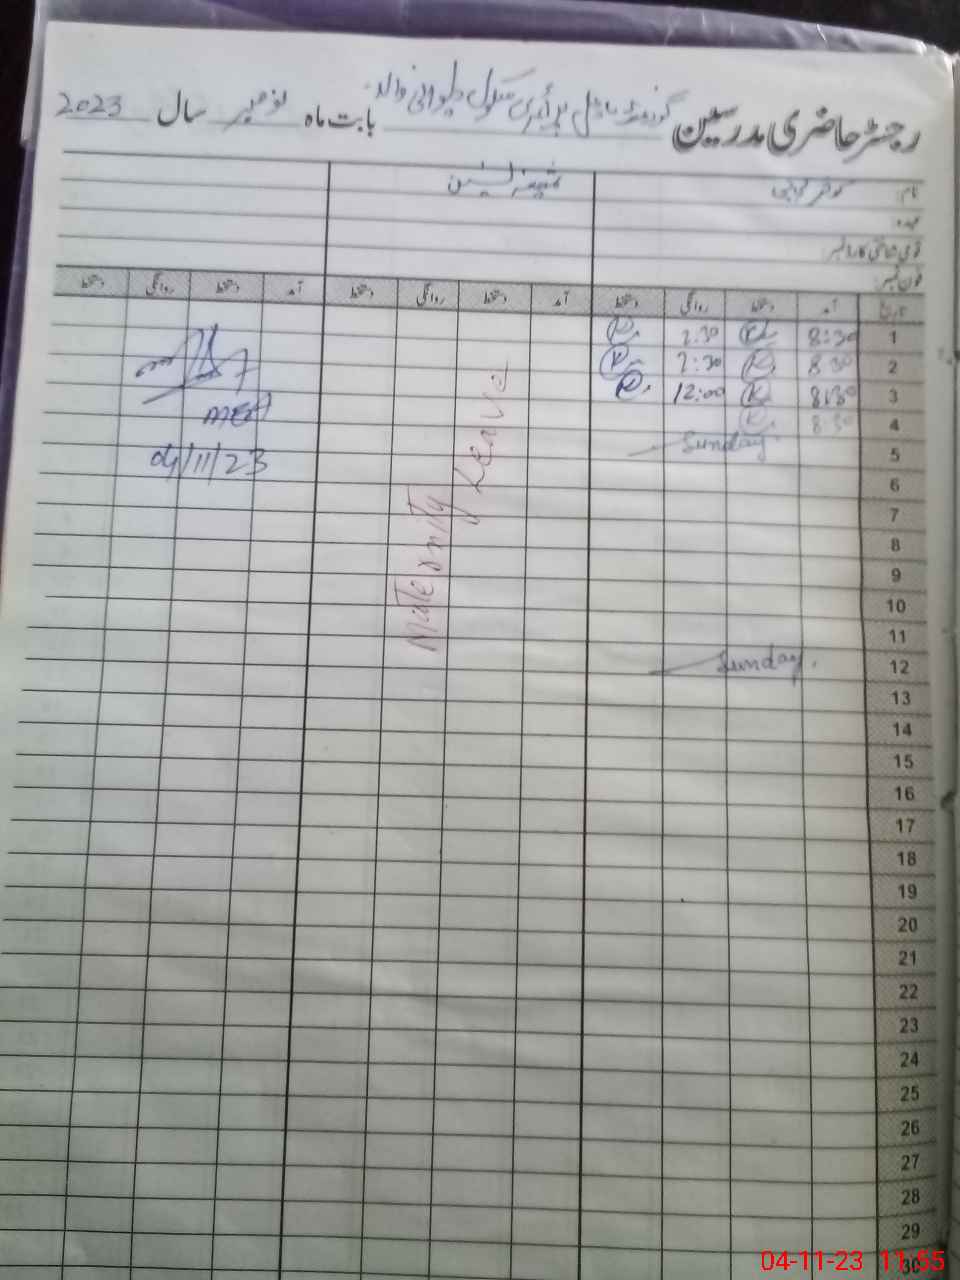 رجسٹر حاضری مدرسین گورنمنٹ ماڈل پرائمری سکول بابت ماہ نومبر سال 2023
نام: کوثر ثمینہ یٰسین
عہدہ
قومی شناختی کارڈ نمبر
فون نمبر:
تاریخ آمد دستخط روانگی دستخط آمد دستخط روانگی دستخط آمد دستخط روانگی دستخط
1 8:30 2:30
2 8:30 2:30
3 8:30 12:00
4 8:30
5 Sunday
6
7
8
9
10
11
12 Sunday.
13
14
15
16
17
18
19
20
21
22
23
24
25
26
27
28
29
30
Maternity Leave
MEA
04/11/23
04-11-23 11:55